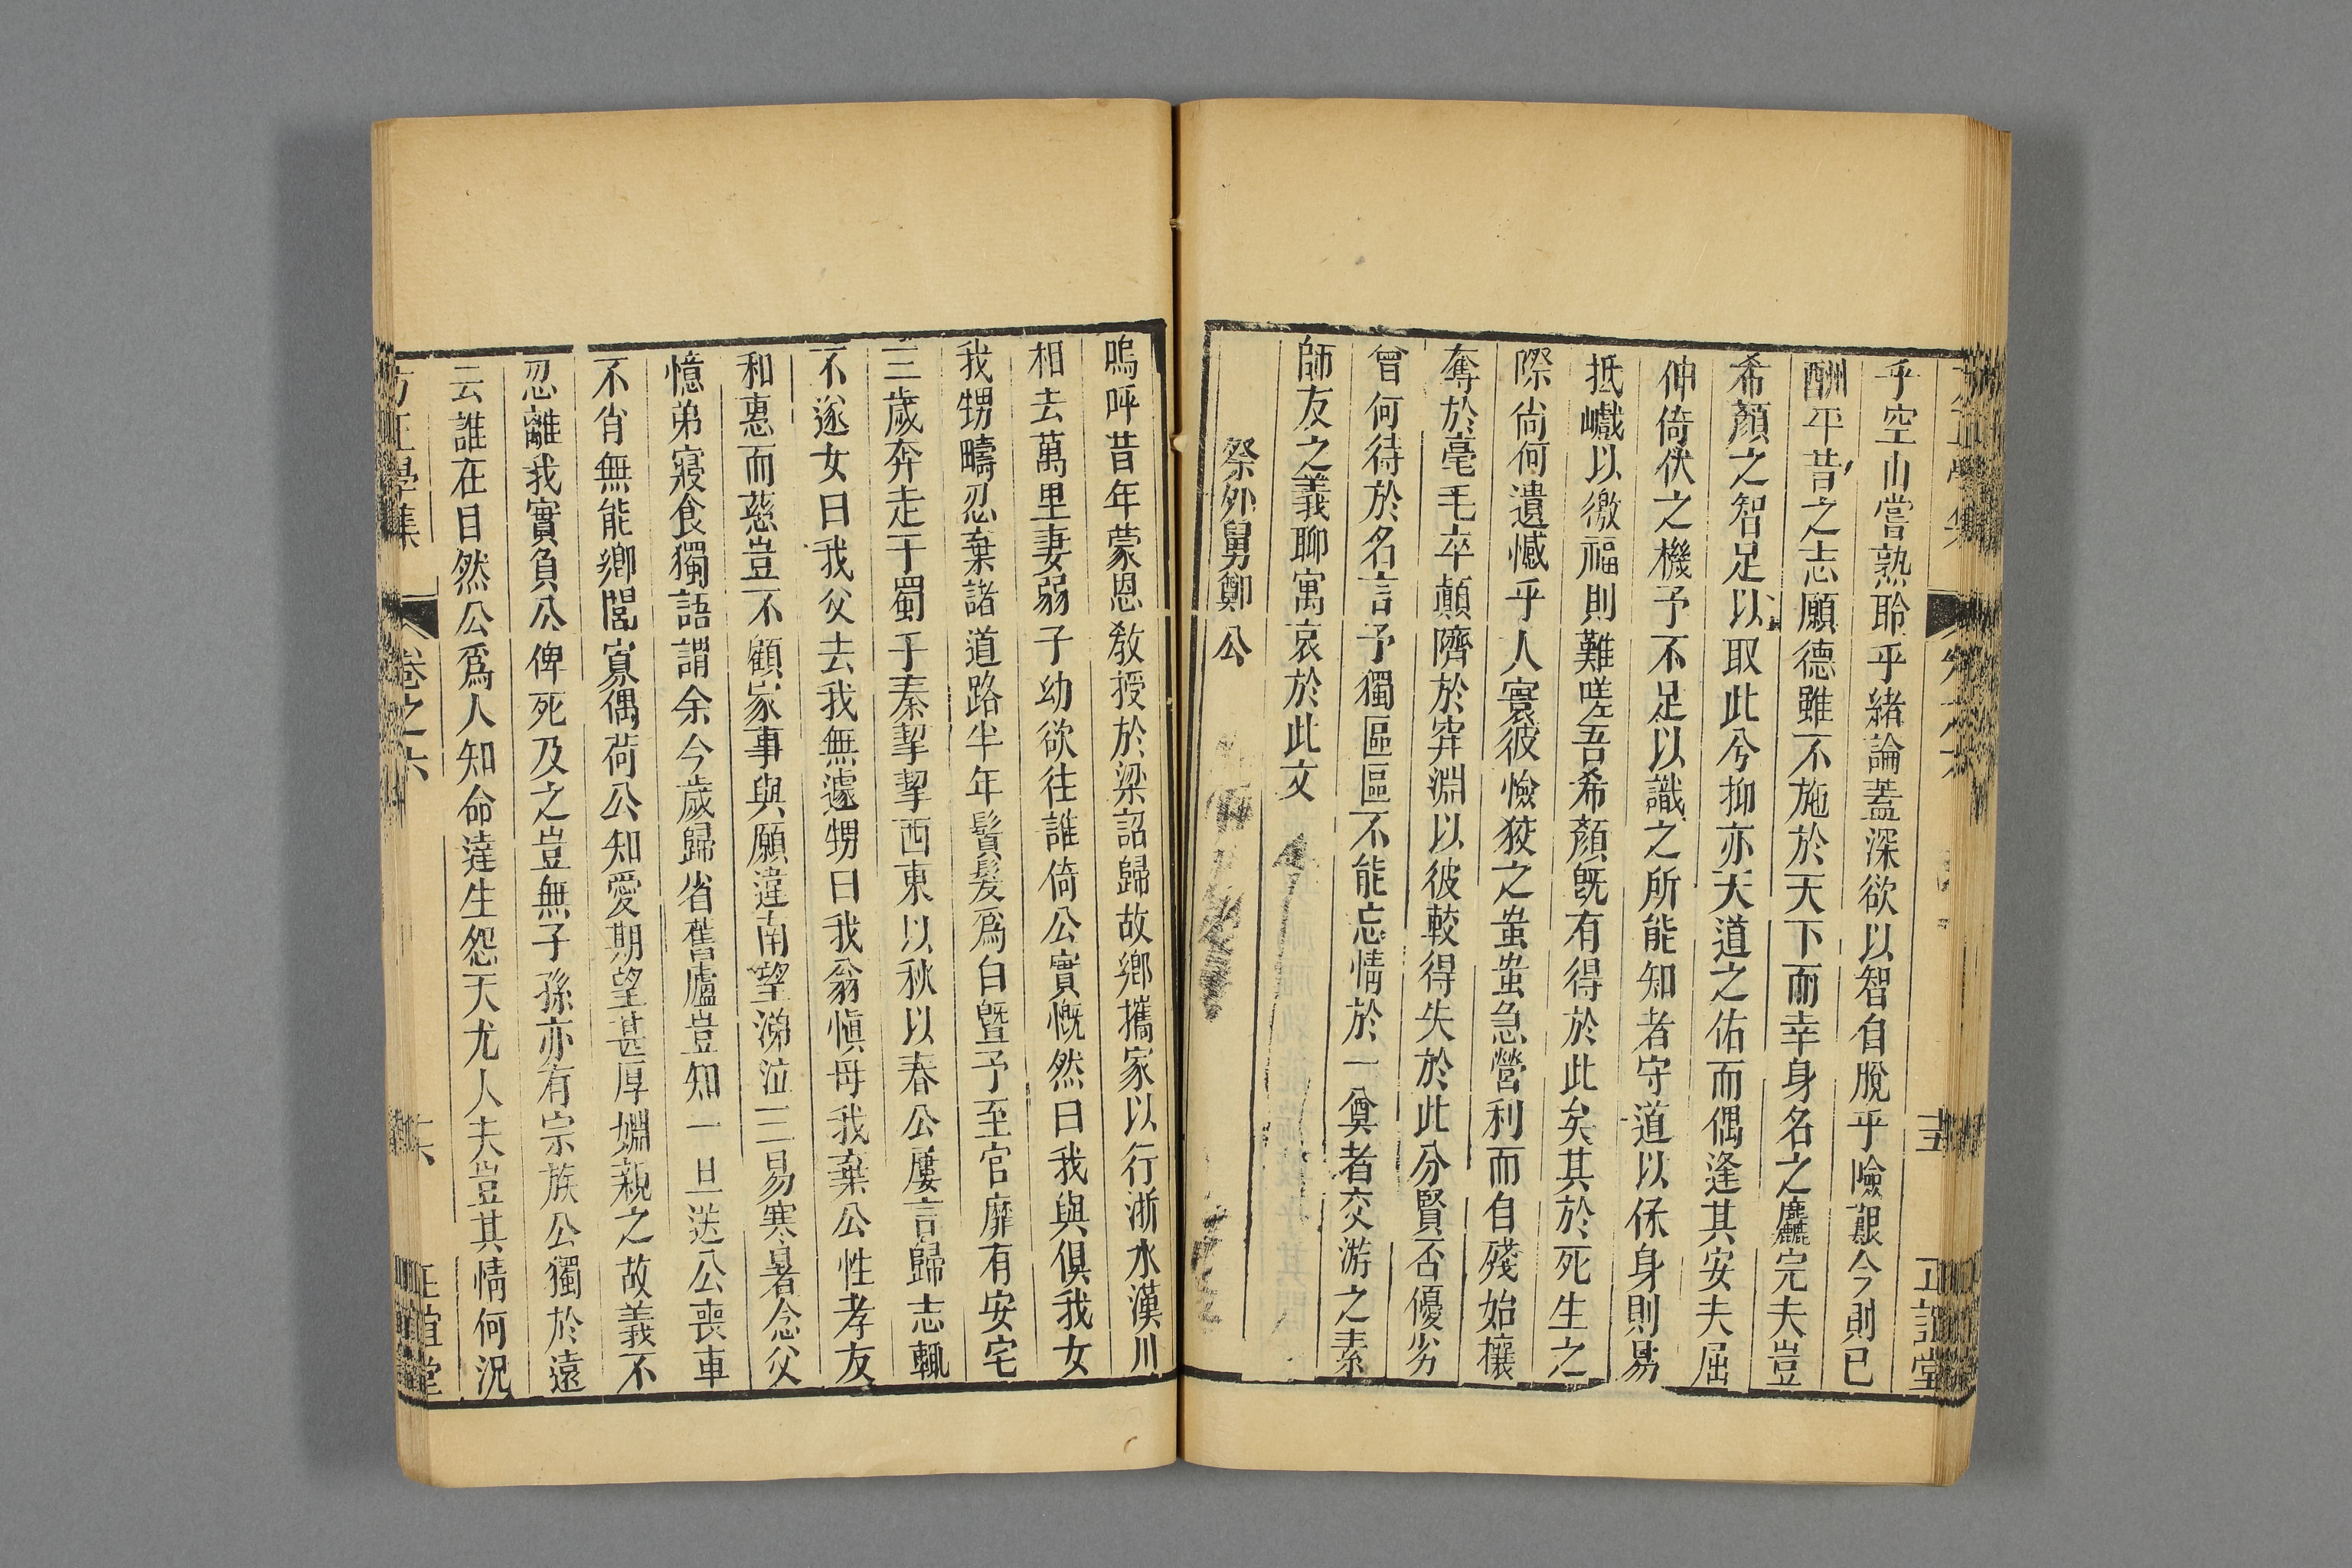 乎空山嘗熟聆乎緒論蓋深欲以智自脫乎險艱今則已
酬平昔之志願德雖不施於天下而幸身名之麤完夫豈
希顏之智足以取此兮抑亦天道之佑而偶逢其安夫屈
伸倚伏之機予不足以識之所能知者守道以保身則易
抵巇以徼福則難嗟吾希顏旣有得於此矣其於死生之
際尙何遺憾乎人寰彼憸狡之蚩蚩急營利而自殘始攘
奪於毫毛卒顛隮於穽淵以彼較得失於此分賢否優劣
曾何待於名言予獨區區不能忘情於一奠者交游之素
師友之義聊寓哀於此文
祭外舅鄭公
嗚呼昔年蒙恩敎授於梁詔歸故鄉攜家以行浙水漢川
相去萬里妻弱子幼欲往誰倚公實慨然曰我與俱我女
我甥疇忍棄諸道路半年鬢髮爲白曁予至官廨有安宅
三歲奔走于蜀于秦挈挈西東以秋以春公屢言歸志輒
不遂女曰我父去我無遽甥曰我翁愼毋我棄公性孝友
和惠而慈豈不顧家事與願違南望涕泣三易寒暑念父
憶弟寢食獨語謂余今歲歸省舊廬豈知一旦送公喪車
不肖無能鄉閭寡偶荷公知愛期望甚厚姻親之故義不
忍離我實負公俾死及之豈無子孫亦有宗族公獨於遠
云誰在目然公爲人知命達生怨天尤人夫豈其情何況
方正學集
卷之六
正誼堂